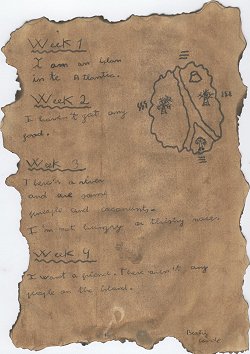 Week 1
I am an islan
in te Atlantic.
Week 2
I haven't got any
food.
Week 3
There's a river
and are some
and coconuts.
I'm not hungry or thirsty now.
Week 4
I want a friend. There aren't any
people on the island.